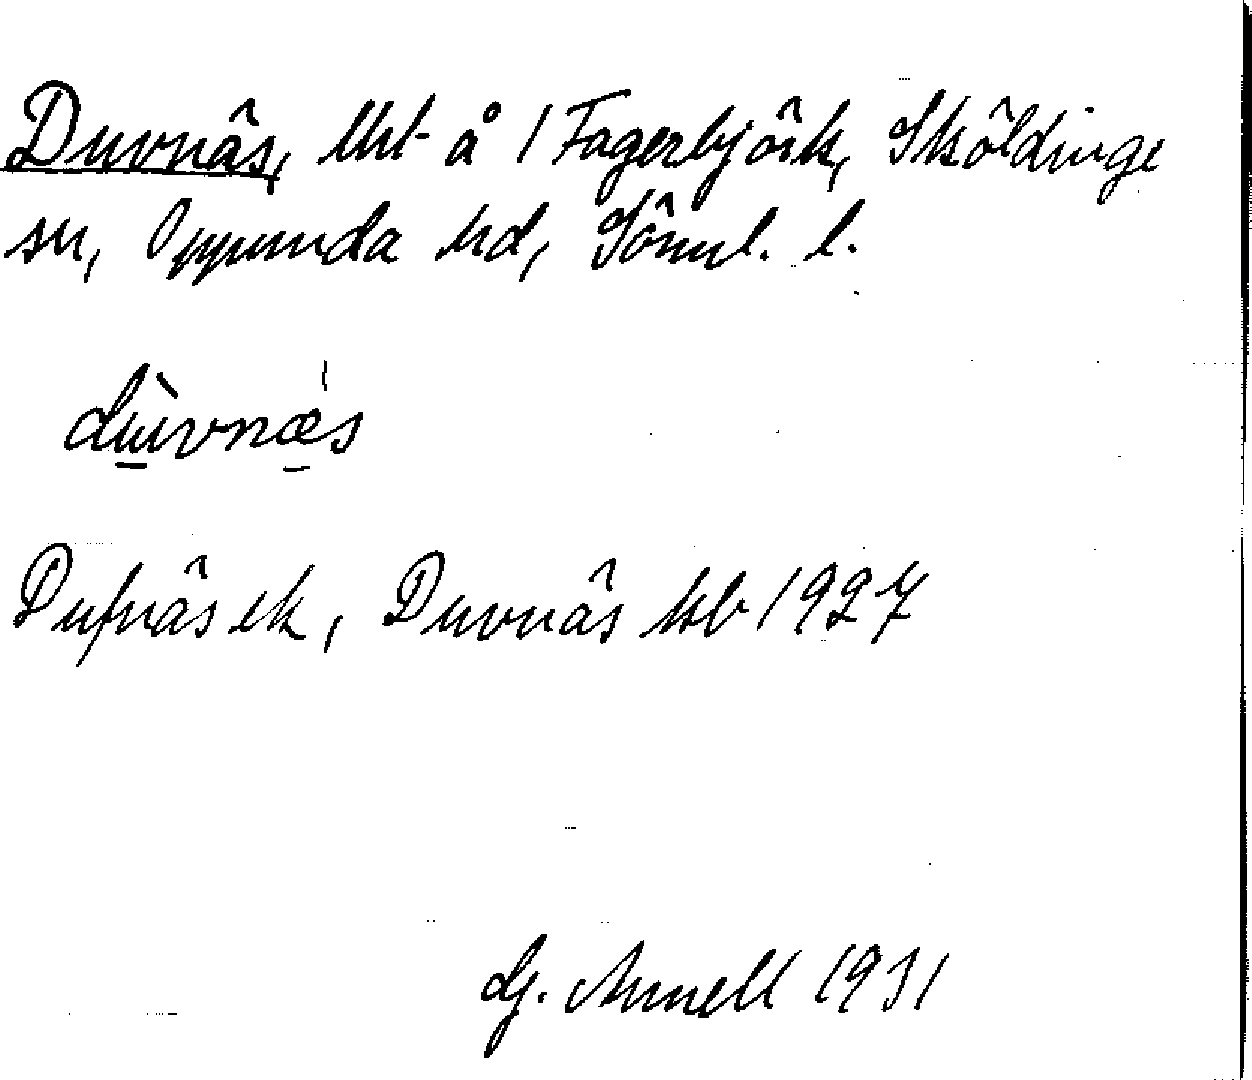 Duvnäs, lht å 1 Fagerbjörk, Sköldinge
sn, Oppunda hd, Söml. l.
dùvnæ̀s
Dufnäs ek, Duvnäs kb 1927
G. Annell 1931